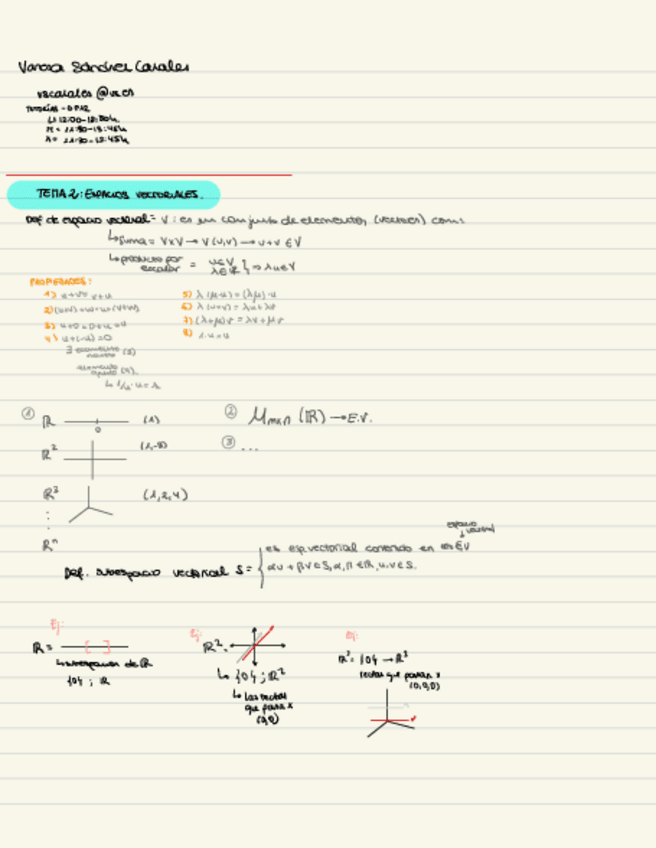 Vanesa Sánchez Canales
vscanales@us.es
TUTORÍAS - D
L: 12:00-13:30h.
M = 11:30-13:45h
X = 11:30-13:45h
TEMA 2: ESPACIOS VECTORIALES.
Def de espacio vectorial = V : es un conjunto de elementos (vectores) con:
↳ suma = VxV → V (u,v) → u+v ∈ V
↳ producto por escalar = u∈V λ∈ℝ } ⇒ λu∈V
PROPIEDADES:
1) u+v = v+u
2) (u+v)+w = u+(v+w)
3) u+0=0+u=u
4) u+(-u)=0
∃ elemento neutro (3)
elemento opuesto (4).
5) λ(μ·u) = (λμ)·u
6) λ(u+v) = λu+λv
7) (λ+μ)v = λv+μv
8) 1·u=u
① ℝ (1)
0
ℝ² (1,-3)
ℝ³ (1,2,4)
⋮
ℝⁿ
② Mmxn (ℝ) → E.V.
③ ...
espacio vectorial
↓
Def. subespacio vectorial S = { es esp. vectorial contenido en E.V
αu + βv ∈ S, α, β ∈ ℝ, u, v ∈ S.
Ej:
ℝ = [ ]
↳ subespacios de ℝ
{0} ; ℝ
Ej:
ℝ².
↳ {0} ; ℝ²
↳ Las rectas
que pasan x
(0,0)
Ej:
ℝ³ = {0} → ℝ³
rectas que pasan x
(0,0,0)